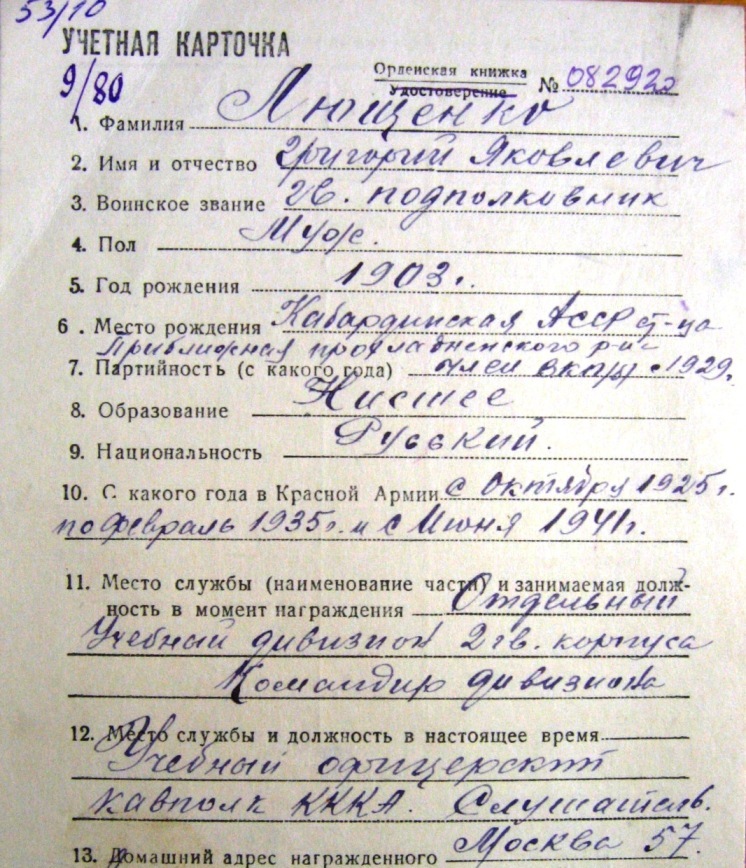 53/10
УЧЕТНАЯ КАРТОЧКА
9/80
Орденская книжка
Удостоверение № 082922
1. Фамилия Лющенко
2. Имя и отчество Григорий Яковлевич
3. Воинское звание гв. подполковник
4. Пол Муж.
5. Год рождения 1903 г.
6. Место рождения Кабардинская АССР ст-ца
Приближная прохладненского р-н
7. Партийность (с какого года) член вкп/б/ с 1929.
8. Образование Нисшее
9. Национальность Русский.
10. С какого года в Красной Армии с Октября 1925 г.
по февраль 1935 г. и с Июня 1941 г.
11. Место службы (наименование части) и занимаемая долж-
ность в момент награждения Отдельный
Учебный дивизион 2 гв. корпуса
Командир дивизиона
12. Место службы и должность в настоящее время
Учебный офицерский
кавполк ККА. Слушатель.
13. Домашний адрес награжденного Москва 57.